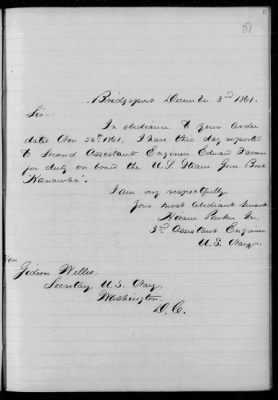 81
Bridgeport December 3rd 1861.
Sir
In obedience to your order
dated Nov 26th 1861, I have this day reported
to Second Assistant Engineer Edward Farmer
for duty on board the U.S. Steam Gun Boat
"Kanawha".
I am very respectfully
Your most obedient servant
Horace
3rd Assistant Engineer
U.S. Navy.
Hon
Gideon Welles.
Secretary U.S. Navy.
Washington
D.C.